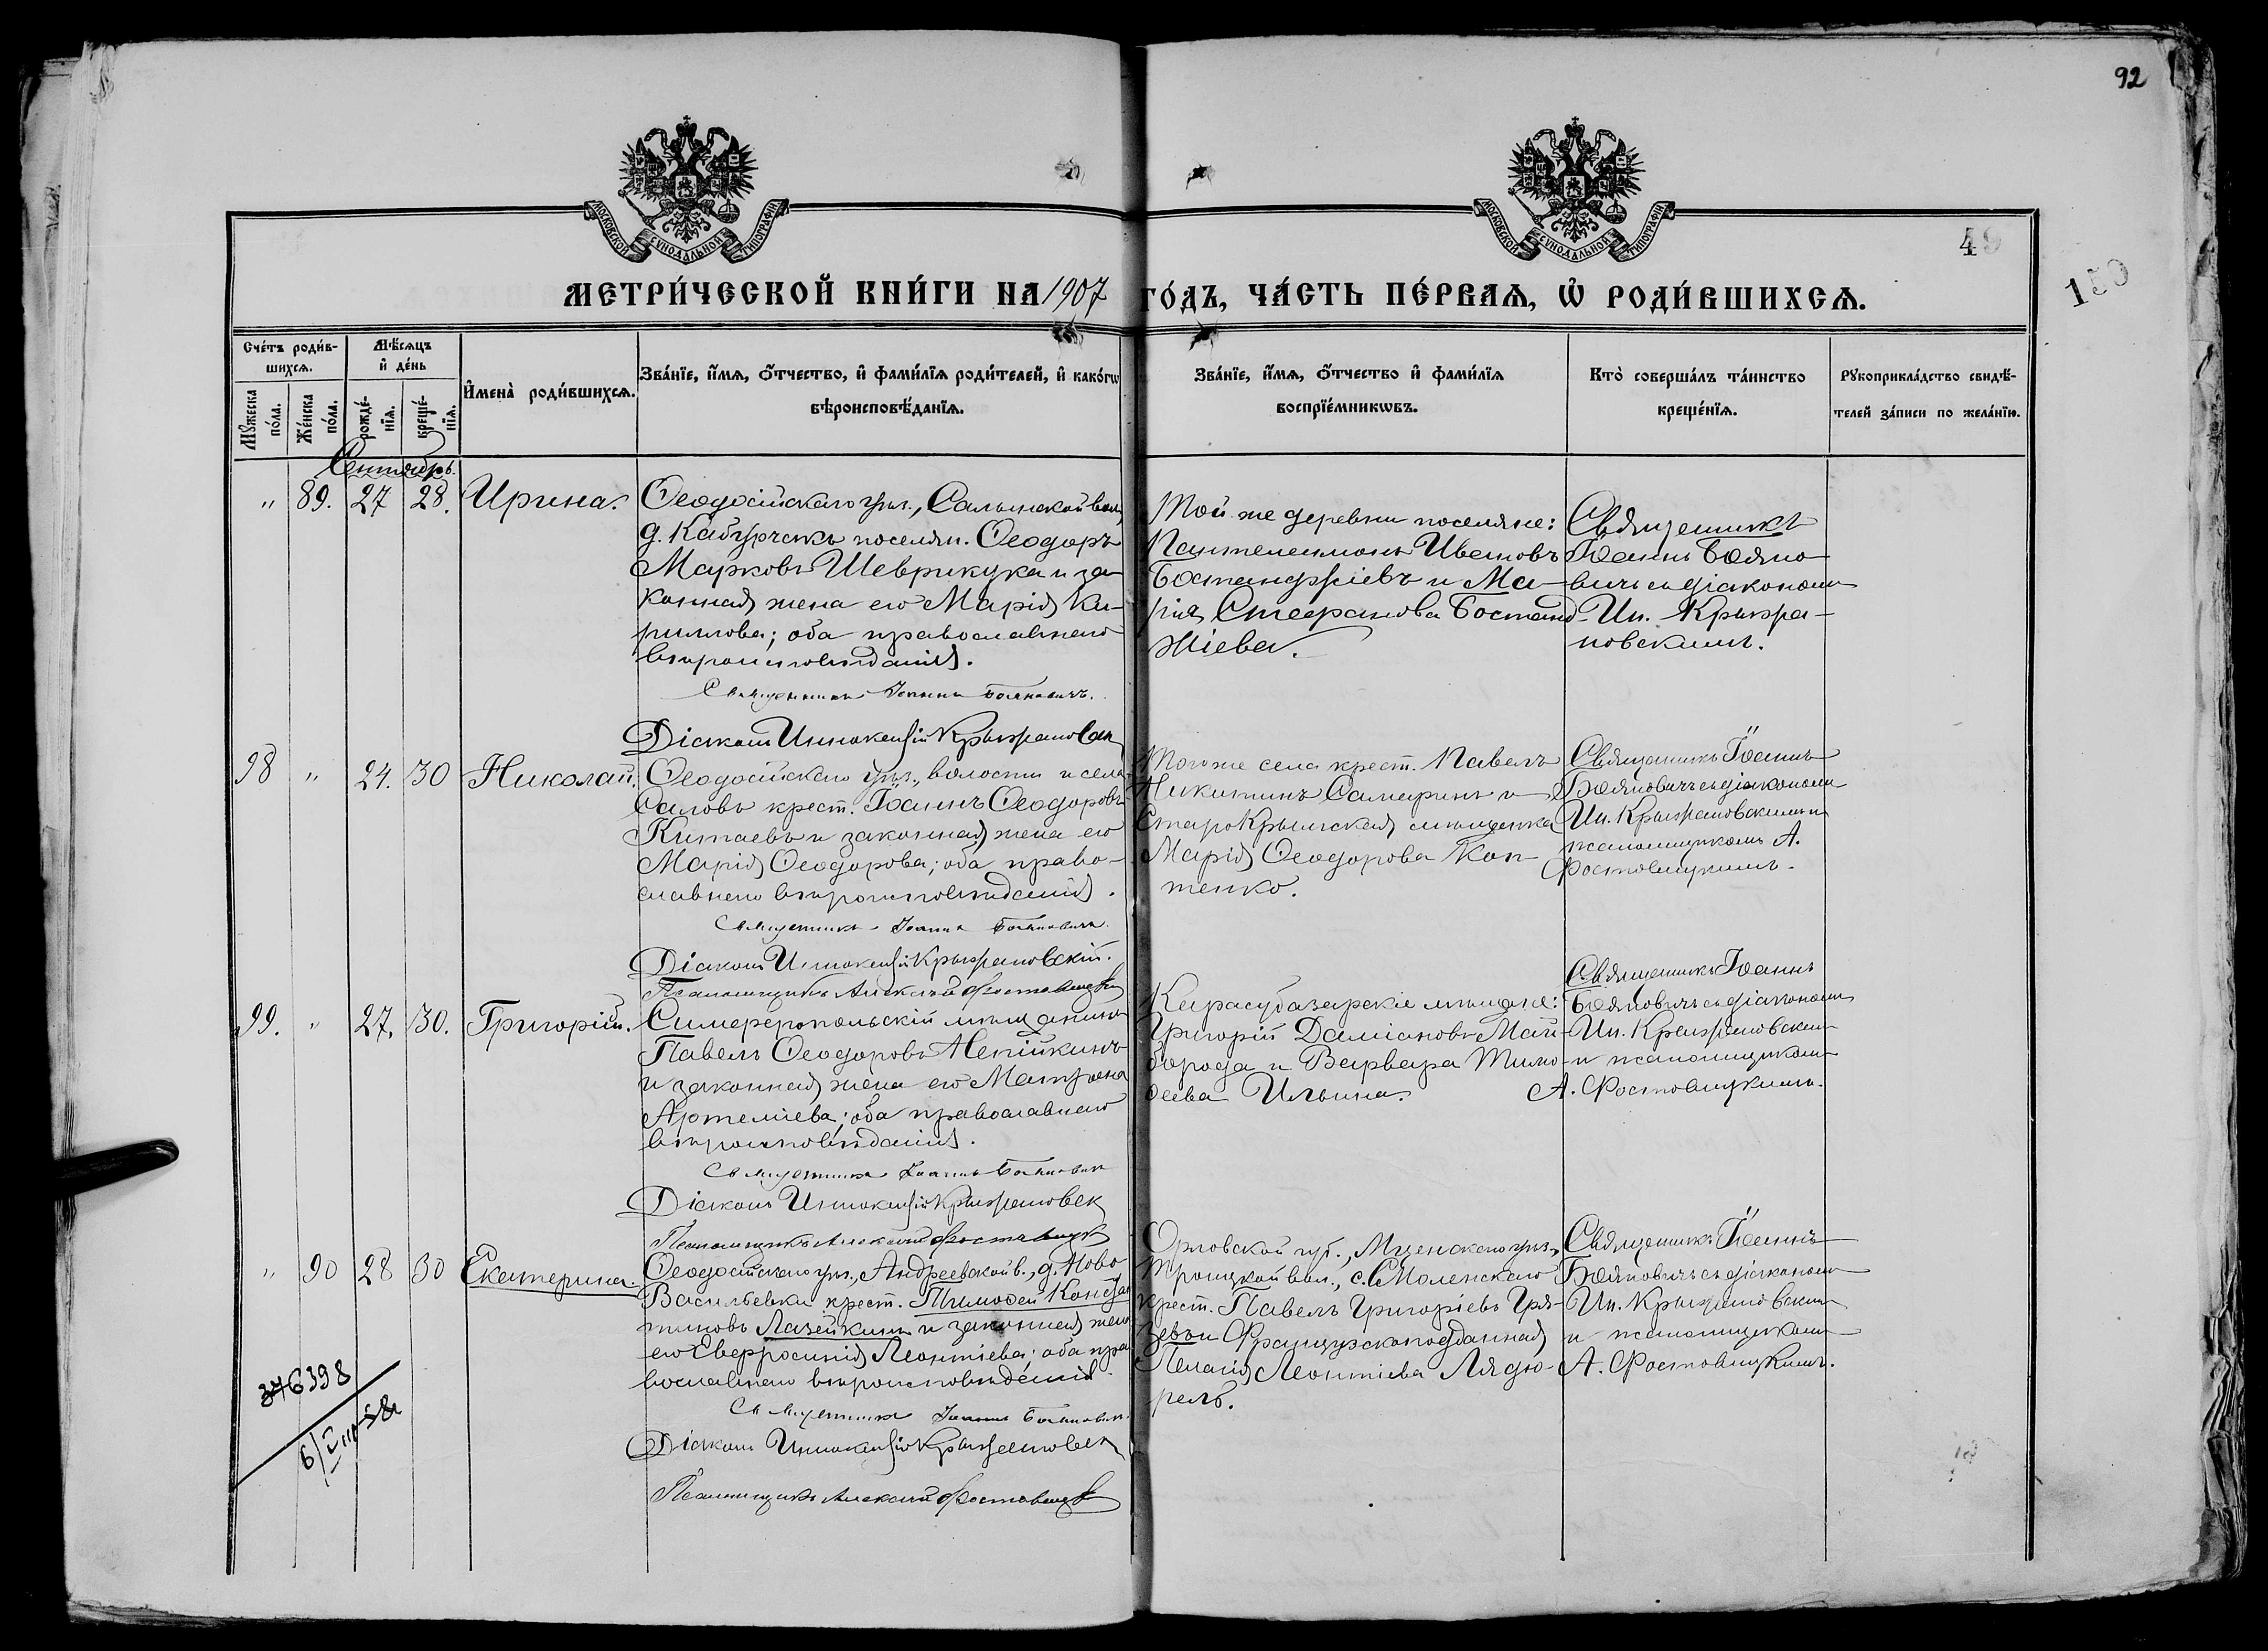 92
МОСКОВСКОЙ СѴНОДАЛЬНОЙ ТИПОГРАФІИ
МОСКОВСКОЙ СѴНОДАЛЬНОЙ ТИПОГРАФІИ
49
159
МЕТРИ́ЧЕСКОЙ КНИ́ГИ НА 1907 ГО́ДЪ, ЧА́СТЬ ПЕ́РВАѦ, Ѽ РОДИ́ВШИХСѦ.
Сче́тъ роди́в-
шихсѧ.
Мꙋ́жеска по́ла.
Же́нска по́ла.
Мѣ́сѧцъ
и҆ де́нь
рожде́-нїѧ.
креще́-нїѧ.
И҆мена̀ роди́вшихсѧ.
Зва́нїе, и҆́мѧ, ѻ҆́тчество, и҆ фами́лїѧ роди́телей, и҆ како́гѡ
вѣроисповѣ́данїѧ.
Зва́нїе, и҆́мѧ, ѻ҆́тчество и҆ фами́лїѧ
воспрїе́мникѡвъ.
Кто̀ соверша́лъ та́инство
креще́нїѧ.
Рꙋкоприкла́дство свидѣ́-
телей за́писи по жела́нїю.
Сентябрь.
" 89. 27 28. Ирина.
Ѳеодосійскаго уѣз., Салынской вол.,
д. Кабурчакъ поселян. Ѳеодоръ
Марковъ Шеврикука и за-
конная жена его Марія Ки-
рилова; оба православнаго
вѣроисповѣданія.
Священникъ Іоаннъ Бояновичъ.
Діаконъ Иннокентій Крыжановск
Той же деревни поселяне:
Пантелеимонъ Ивановъ
Бостанджіевъ и Ма-
рія Стефанова Бостанд-
жіева.
Священникъ
Іоаннъ Бояно-
вичъ съ діакономъ
Ин. Крыжа-
новскимъ.
98 " 24. 30 Николай.
Ѳеодосійскаго уѣз., волости и села
Саловъ крест. Іоаннъ Ѳеодоровъ
Китаевъ и законная жена его
Марія Ѳеодорова; оба право-
славнаго вѣроисповѣданія.
Священникъ Іоаннъ Бояновичъ.
Діаконъ Иннокентій Крыжановскій.
Псаломщикъ Алексѣй Фостовицкі
Того же села крест. Павелъ
Никитинъ Самаринъ и
СтароКрымская мѣщанка
Марія Ѳеодорова Кон-
тенко.
Священникъ Іоаннъ
Бояновичъ съ діакономъ
Ин. Крыжановскимъ и
псаломщикомъ А.
Фостовицкимъ.
99. " 27. 30. Григорій.
Симферопольскій мѣщанинъ
Павелъ Ѳеодоровъ Непійкинъ
и законная жена его Матрона
Артеміева; оба православнаго
вѣроисповѣданія.
Священникъ Іоаннъ Бояновичъ
Діаконъ Иннокентій Крыжановск
Псаломщикъ Алексѣй Фостовицк
Карасубазарскіе мѣщане:
Григорій Даміановъ Май-
борода и Варвара Тимо-
ѳеева Ильина.
Священникъ Іоаннъ
Бояновичъ съ діакономъ
Ин. Крыжановскимъ
и псаломщикомъ
А. Фостовицкимъ.
" 90 28 30 Екатерина.
Ѳеодосійскаго уѣз., Андреевской в., д. Ново
Васильевки крест. Тимоѳей Кондра
тиковъ Лазейкинъ и законная жена
его Евфросинія Леонтіева; оба пра
вославнаго вѣроисповѣданія.
Священникъ Іоаннъ Бояновичъ.
Діаконъ Иннокентій Крыжановск
Псаломщикъ Алексѣй Фостовицк
Орловской губ., Мценскаго уѣз.,
Троицкой вол., с. Смоленскаго
крест. Павелъ Григоріевъ Гря-
зевъ и Французскоподданная
Пелагія Леонтіева Лядю-
релъ.
Священникъ Іоаннъ
Бояновичъ съ діакономъ
Ин. Крыжановскимъ
и псаломщикомъ
А. Фостовицкимъ.
376398